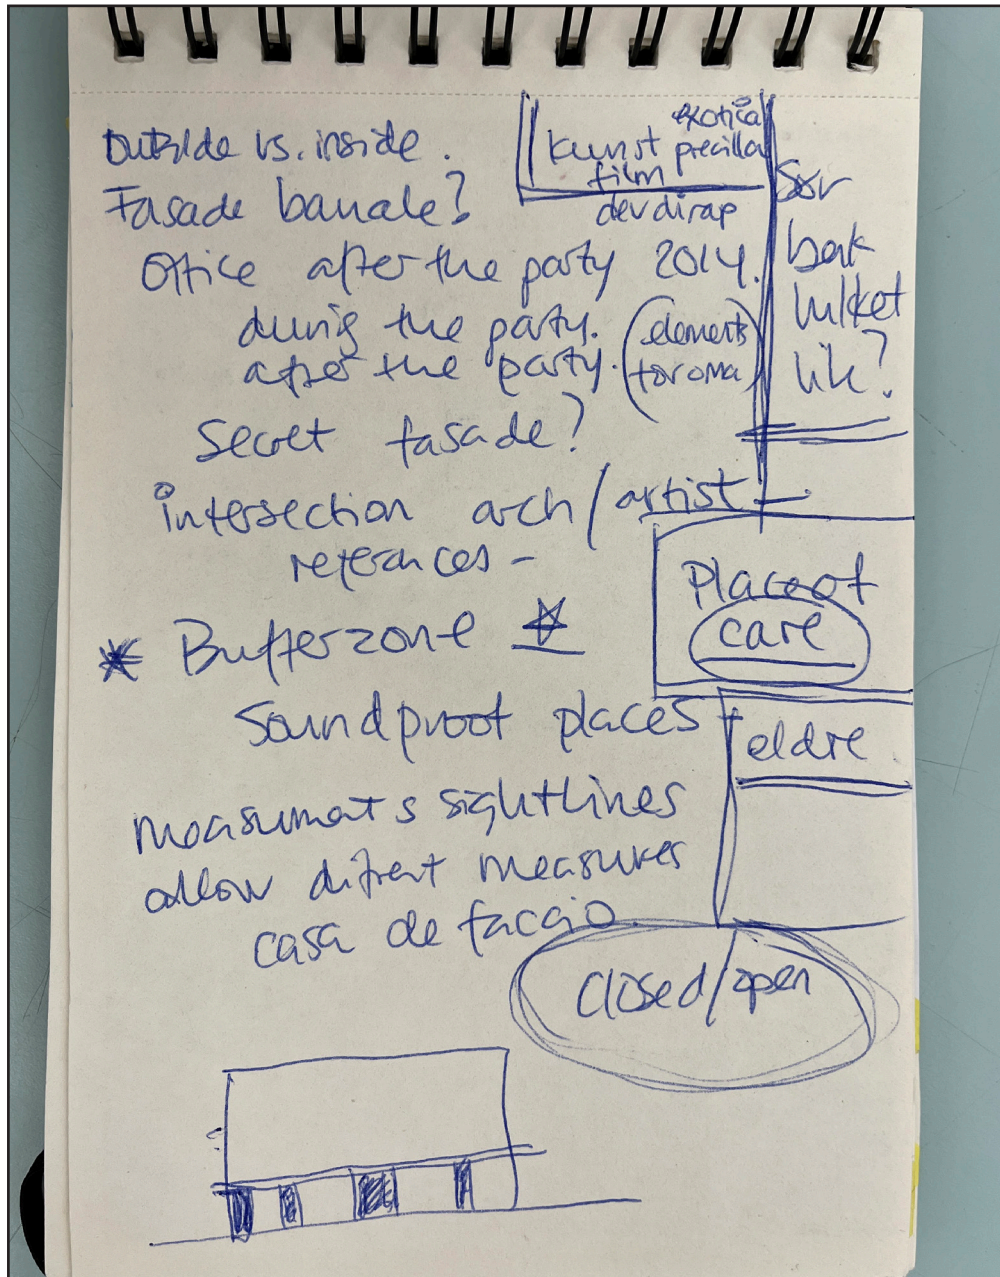 outside vs. inside.
Fasade banale?
Office after the party 2014.
during the party.
after the party.
(elements
to roma)
Secret fasade?
intersection arch/artist
referances -
* Bufferzone ☆
Soundproof places
measurments sightlines
allow difrent measures
casa de faccio
exotica
kunst precilla
film
dev dirap
bak
hvilket
lik?
Place of
care
eldre
closed/open